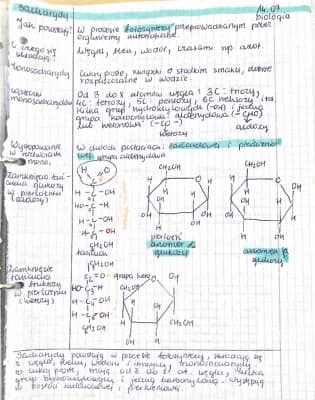 Sacharydy
14.07.
biologia
Jak powstają?
W procesie fotosyntezy przeprowadzanym przez
organizmy autotroficzne.
Z czego się
składają?
Węgiel, tlen, wodór, czasami np. azot.
Monosacharydy
Cukry proste, związki o słodkim smaku, dobrze
rozpuszczalne w wodzie.
monosacharydów
Od 3 do 8 atomów węgla: 3C: triozy,
4C: tetrozy, 5C: pentozy, 6C heksozy itd.
Kilka grup hydroksylowych (-OH) i jedna
grupa karbonylowa: aldehydowa (-CHO)
lub ketonowa (-CO-)
ketozy
aldozy
Występowanie
w roztworach
W dwóch postaciach: łańcuchowej i pierścieniowej
grupa aldehydowa
Zamknięcie łańcucha glukozy
w pierścień
(aldozy)
łańcuch
pierścień
anomer α
glukozy
anomer β
glukozy
Zamknięcie
łańcucha
fruktozy
w pierścień
(ketozy)
grupa keto
Sacharydy powstają w procesie fotosyntezy, składają się
z węgla, tlenu, wodoru i innych, monosacharydy
to cukry proste, mają od 3 do 8 at. węgla, kilka
grup hydroksylowych i jedną karbonylową. Występują
w postaci łańcuchowej i pierścieniowej.